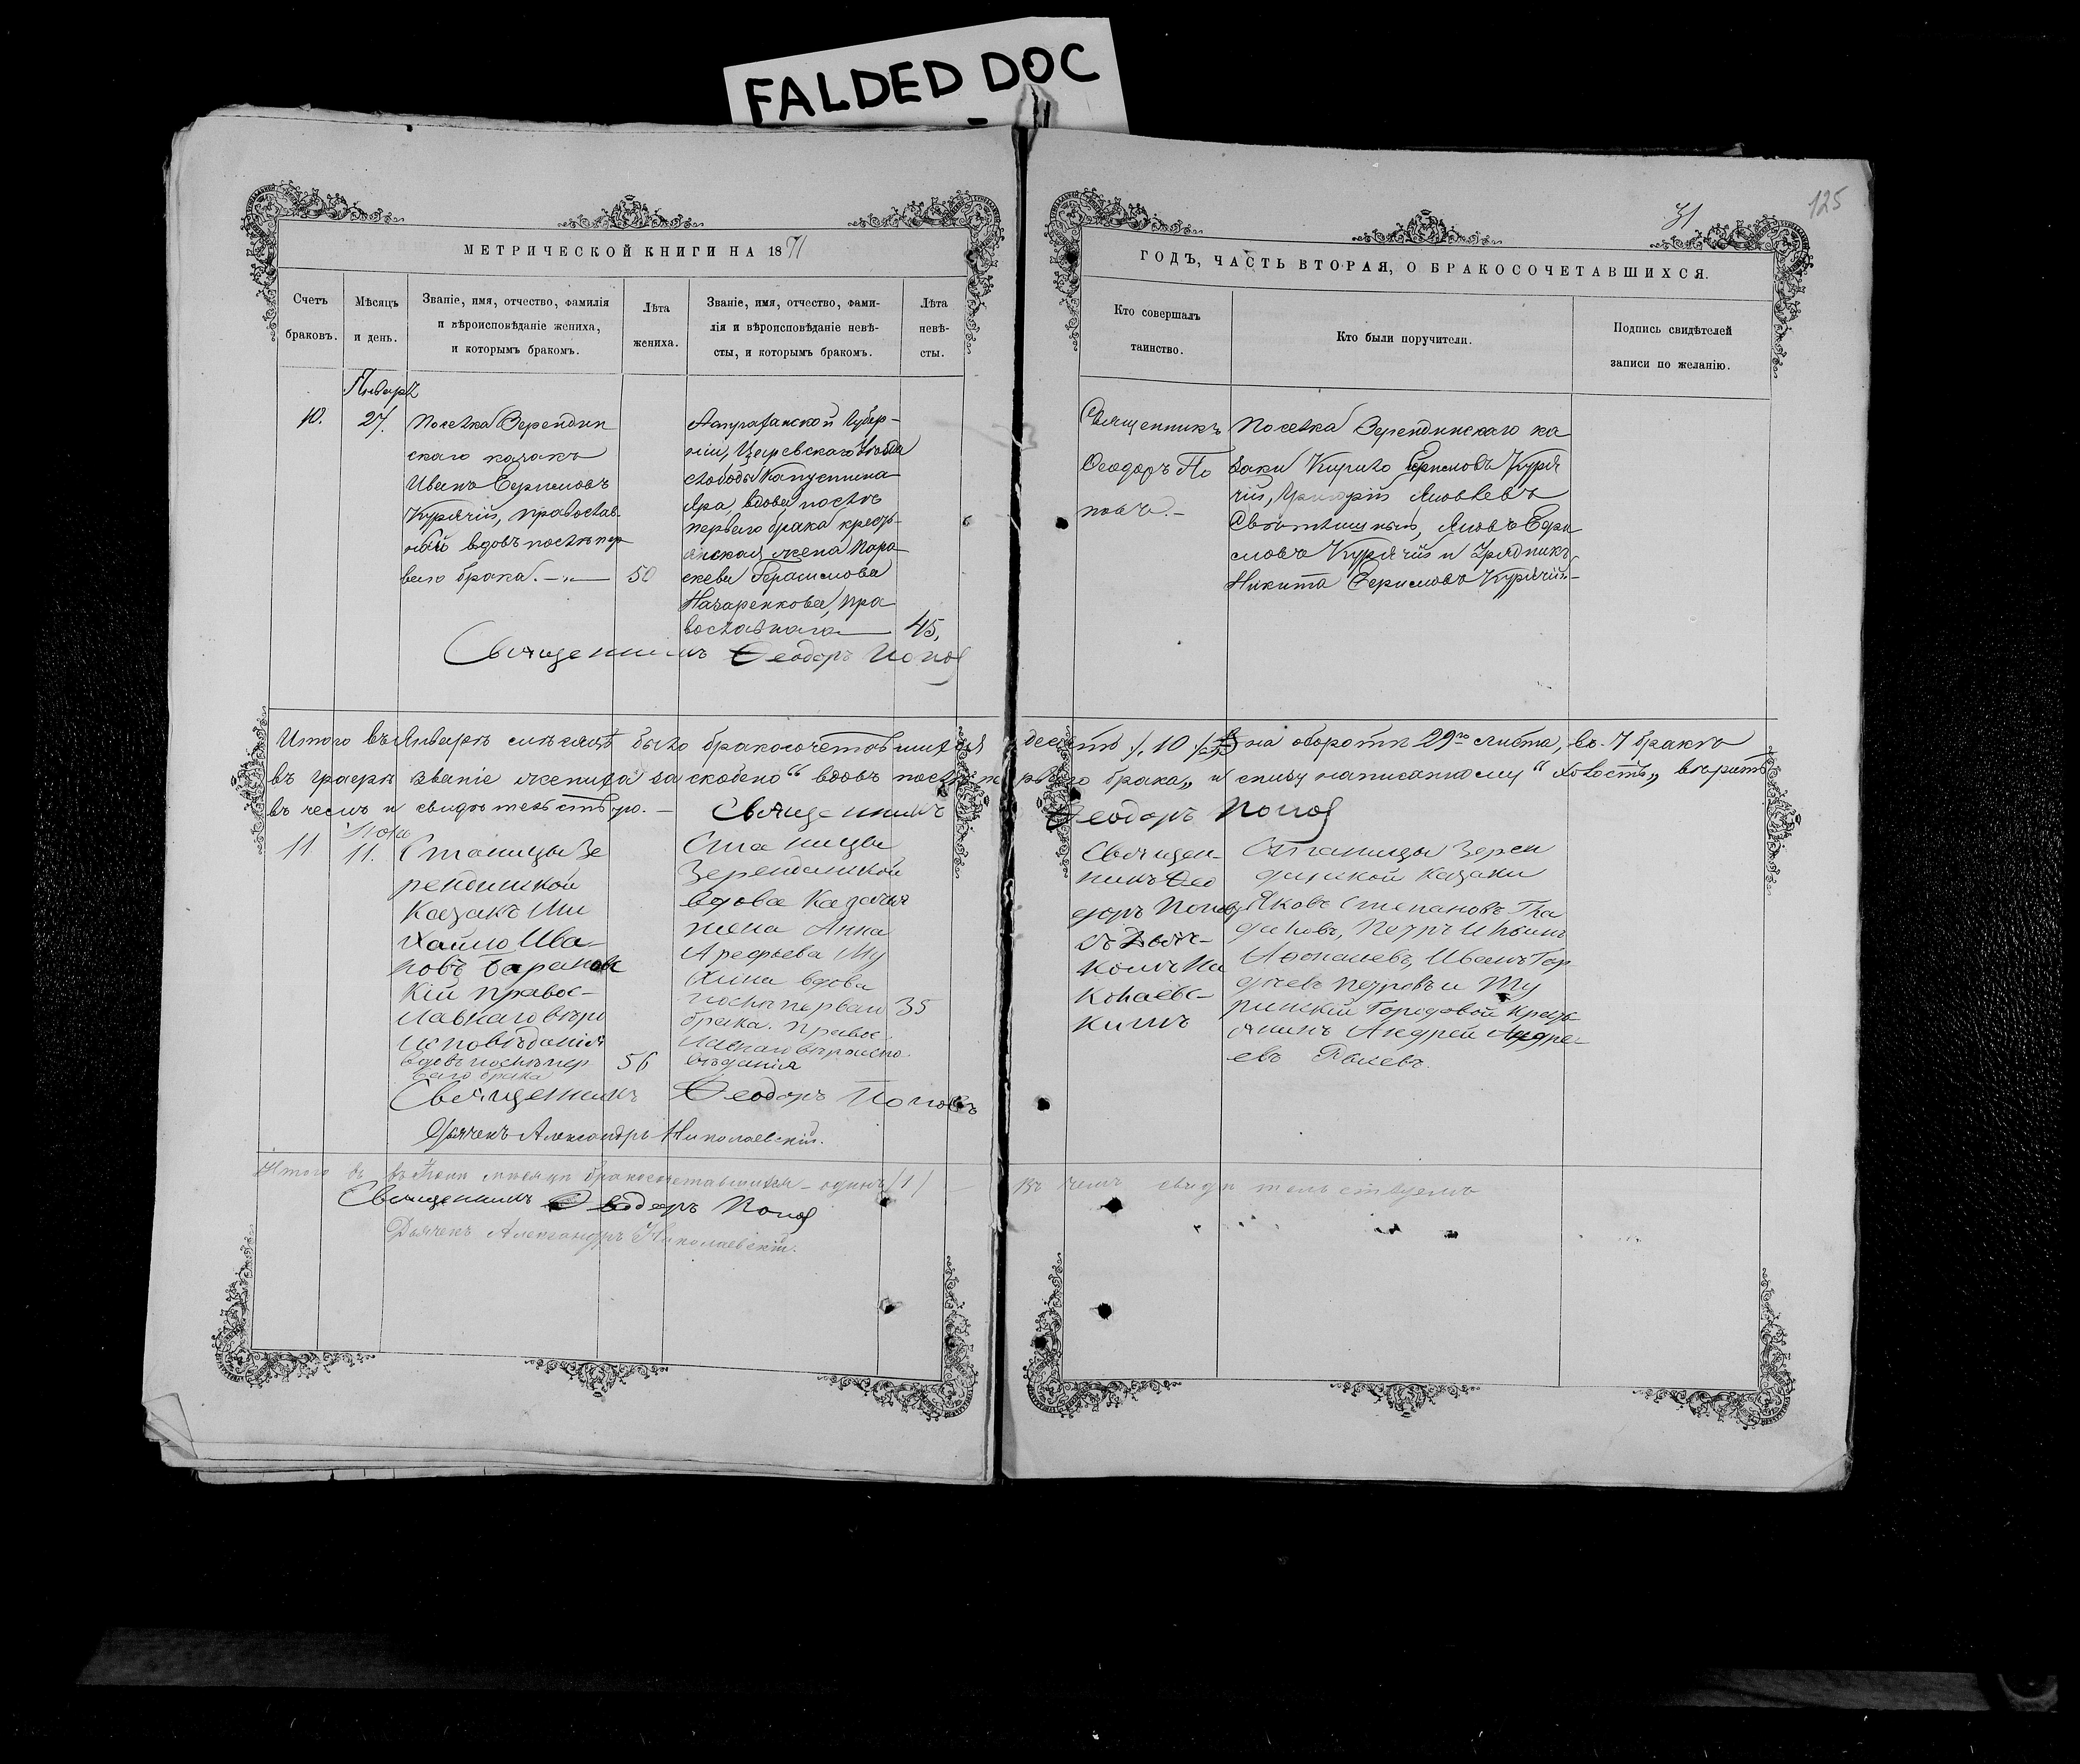 FALDED DOC
125
31
МЕТРИЧЕСКОЙ КНИГИ НА 1871
ГОДЪ, ЧАСТЬ ВТОРАЯ, О БРАКОСОЧЕТАВШИХСЯ.
Счетъ
браковъ.
Мѣсяцъ
и день.
Званіе, имя, отчество, фамилія
и вѣроисповѣданіе жениха,
и которымъ бракомъ.
Лѣта
жениха.
Званіе, имя, отчество, фами-
лія и вѣроисповѣданіе невѣ-
сты, и которымъ бракомъ.
Лѣта
невѣ-
сты.
Кто совершалъ
таинство.
Кто были поручители.
Подпись свидѣтелей
записи по желанію.
10.
Январь
27.
Поселка Зерендин
скаго казакъ
Иванъ
Курячій, православ
ный вдовъ послѣ пер
ваго брака. —„—
50
Астраханской Губер-
ніи, Царевскаго Уѣзда
слободы Капустина
Яра, вдова послѣ
перваго брака кресть-
янская жена Пара-
скева Герасимова
Назаренкова, пра
вославнаго
45,
Священникъ
Ѳеодоръ По
повъ. –
Поселка Зерендинскаго ка
заки Кирило Куря
чій, Григорій Яковлевъ
Яковъ
Курячій и Урядникъ
Никита Курячій –
Священникъ Ѳеодоръ Попов
Итого въ Январѣ мѣсяцѣ было бракосочетавшихся десять /. 10 ./ на оборотѣ 29го листа, въ 7 бракѣ
въ графѣ званіе жениха за скобено “ вдовъ послѣ перваго брака„ и снизу написанному “ холостъ„ вѣрить
въ чемъ и свидѣтельствую. – Священникъ Ѳеодоръ Попов
11
11.
Станицы Зе
рендинской
Казакъ Ми
хайло Ива-
новъ
кій правос-
лавнаго вѣро
исповѣданія
вдовъ послѣ пер
ваго брака
56
Станицы
Зерендинской
вдова Казачья
жена Анна
Арефьева Му
хина вдова
послѣ перваго
брака. правос
лавнаго вѣроиспо
вѣданія
35
Священ-
никъ Ѳео
доръ Попов
съ Дьяч-
комъ Ни
колаевс-
кимъ
Станицы Зерен
динской Казаки
Яковъ Степановъ Гла
дковъ, Петръ
Иванъ Гор
Петровъ и
Городовой Кресть
янинъ Андрей Андре
евъ
Священникъ Ѳеодоръ Поповъ
Дьячекъ Александръ Николаевскій.
Итого въ въ мѣсяцѣ бракосочетавшихся – одинъ (1) – Въ чемъ свидѣтельствуемъ
Священникъ Ѳеодоръ Попов
Дьячекъ Александръ Николаевскій.